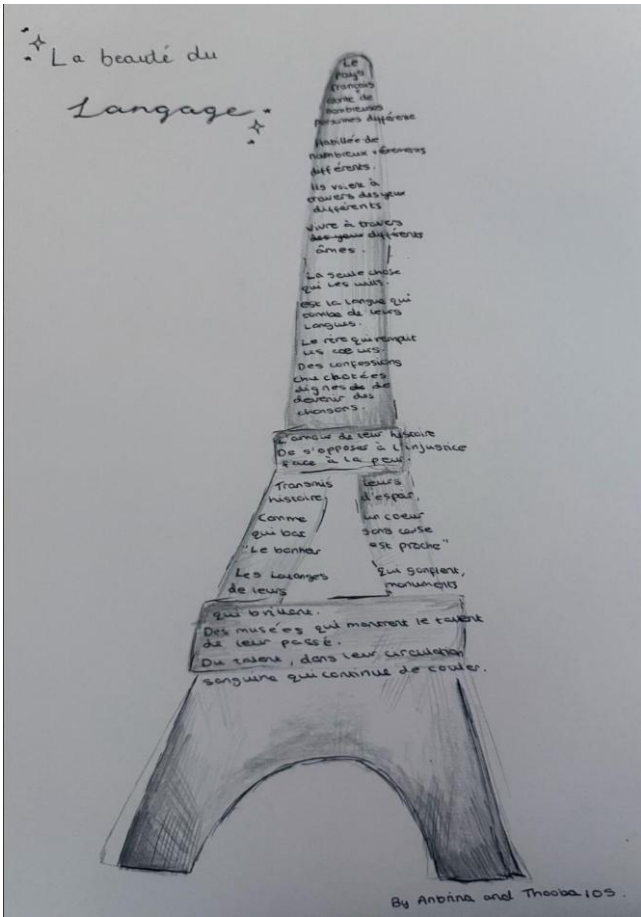 La beauté du
Langage
Le
pays
français
de
nombreuses
personnes différente
Habillée de
nombreux vêtements
différents.
Ils voient à
travers des yeux
différents
Vivre à travers
des yeux différents
âmes.
La seule chose
qui les unis.
est la langue qui
tombe de leurs
langues.
Le rire qui remplit
les cœurs.
Des confessions
chuchotées
dignes de
devenir des
chansons.
L'amour de leur histoire
De s'opposer à l'injustice
face à la peur.
Transmis leurs
histoire d'espoir,
Comme un coeur
qui bat sans cesse
"Le bonheur est proche"
Les louanges qui gonflent,
de leurs monuments
qui brillent.
Des musées qui montrent le talent
de leur passé.
Du talent, dans leur circulation
sanguine qui continue de couler.
By Anbrina and Thooba 10S.